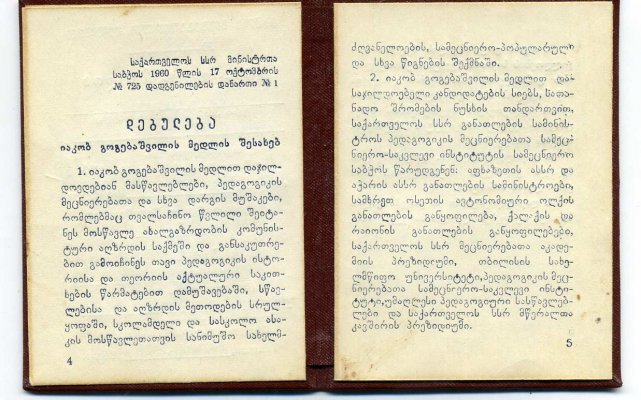 საქართველოს სსრ მინისტრთა
საბჭოს 1960 წლის 17 ოქტომბრის
№ 725 დადგენილების დანართი № 1
დებულება
იაკობ გოგებაშვილის მედლის შესახებ
1. იაკობ გოგებაშვილის მედლით დაჯილ-
დოვდებიან მასწავლებლები, პედაგოგიკის
მეცნიერებათა და სხვა დარგის მუშაკები,
რომლებმაც თვალსაჩინო წვლილი შეიტა-
ნეს მოსწავლე ახალგაზრდობის კომუნის-
ტური აღზრდის საქმეში და განსაკუთრე-
ბით გამოიჩინეს თავი პედაგოგიკის ისტო-
რიისა და თეორიის აქტუალური საკით-
ხების წარმატებით დამუშავებაში, სწავ-
ლებისა და აღზრდის მეთოდების სრულ-
ყოფაში, სკოლამდელი და სასკოლო ასა-
კის მოსწავლეთათვის სანიმუშო სახელმ-
4
ძღვანელოების, სამეცნიერო-პოპულარული
და სხვა წიგნების შექმნაში.
2. იაკობ გოგებაშვილის მედლით და-
საჯილდოებელი კანდიდატების სიებს, სათა-
ნადო შრომების ნუსხის თანდართვით,
საქართველოს სსრ განათლების სამინის-
ტროს პედაგოგიკის მეცნიერებათა სამეც-
ნიერო-საკვლევი ინსტიტუტის სამეცნიერო
საბჭოს წარუდგენენ: აფხაზეთის ასსრ და
აჭარის ასსრ განათლების სამინისტროები,
სამხრეთ ოსეთის ავტონომიური ოლქის
განათლების განყოფილება, ქალაქის და
რაიონის განათლების განყოფილებები,
საქართველოს სსრ მეცნიერებათა აკადე-
მიის პრეზიდიუმი, თბილისის სახე-
ლმწიფო უნივერსიტეტი, პედაგოგიკის მეც-
ნიერებათა სამეცნიერო-საკვლევი ინსტი-
ტუტი, უმაღლესი პედაგოგიური სასწავლებ-
ლები და საქართველოს სსრ მწერალთა
კავშირის პრეზიდიუმი.
5